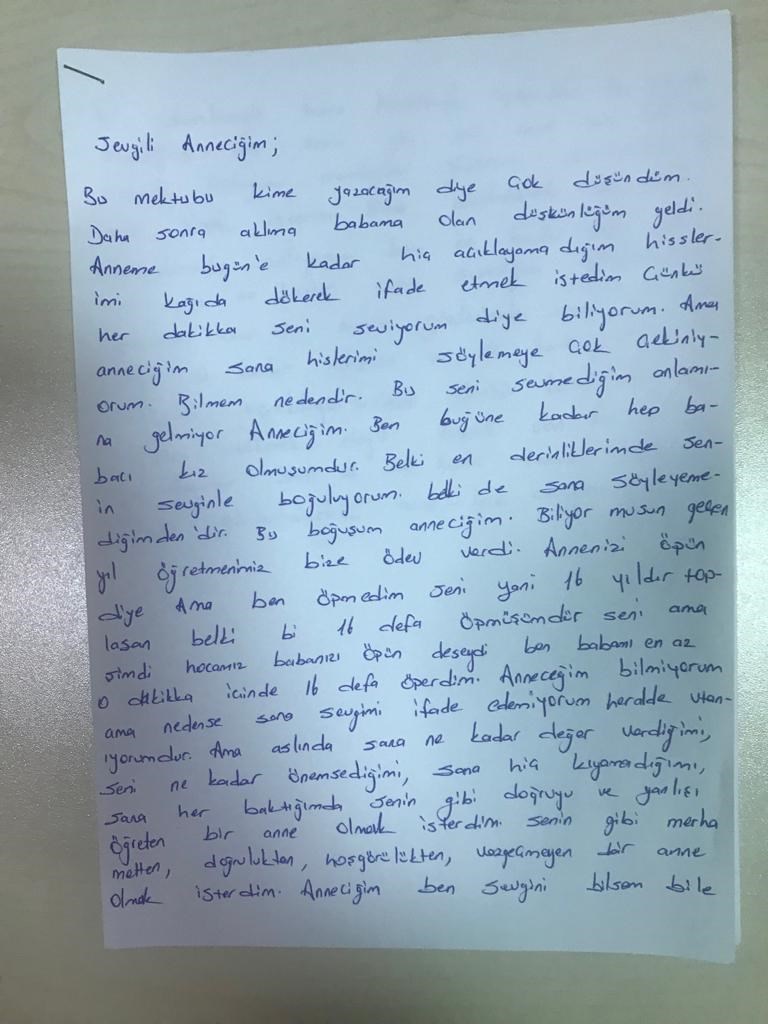 Sevgili Anneciğim;
Bu mektubu kime yazacağım diye çok düşündüm.
Daha sonra aklıma babama olan düşkünlüğüm geldi.
Anneme bugün'e kadar hiç açıklayamadığım hissler-
imi kağıda dökerek ifade etmek istedim Çünkü
her dakikka seni seviyorum diye biliyorum. Ama
anneciğim sana hislerimi söylemeye çok çekiniy-
orum. Bilmem nedendir. Bu seni sevmediğim anlamı-
na gelmiyor Anneciğim. Ben buğüne kadar hep ba-
bacı kız olmuşumdur. Belki en derinliklerimde sen-
in sevginle boğuluyorum. belki de sana söyleyeme-
diğimden'dir. Bu boğuşum anneciğim. Biliyor musun geçen
yıl öğretmenimiz bize ödev verdi. Annenizi öpün
diye Ama ben öpmedim seni yani 16 yıldır top-
lasan belki bi 16 defa öpmüşümdür seni ama
şimdi hocamız babanızı öpün deseydi ben babamı en az
o dakikka içinde 16 defa öperdim. Anneceğim bilmiyorum
ama nedense sana sevgimi ifade edemiyorum heralde utan-
ıyorumdur. Ama aslında sana ne kadar değer verdiğimi,
seni ne kadar önemsediğimi, sana hiç kıyamadığımı,
sana her baktığımda senin gibi doğruyu ve yanlışı
öğreten bir anne olmak isterdim. senin gibi merha
metten, doğruluktan, hoşgörülükten, vazgeçmeyen bir anne
olmak isterdim. Anneciğim ben sevgini bilsem bile